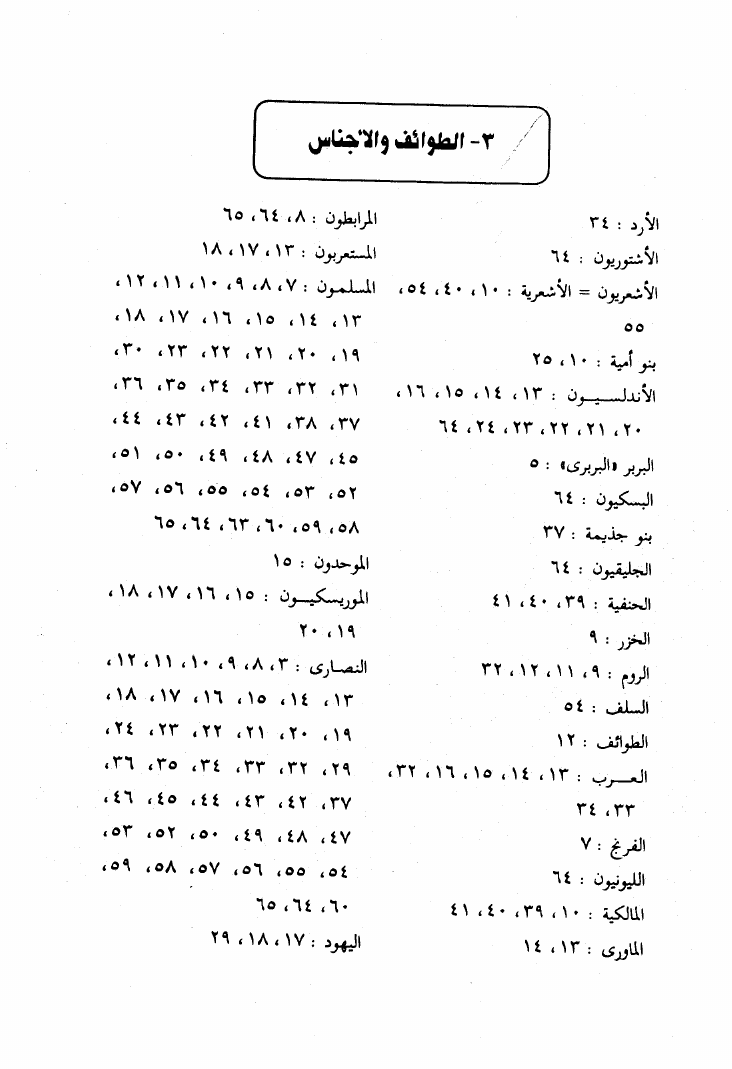 ٣- الطوائف والأجناس
الأرد : ٣٤
الأشتوريون : ٦٤
الأشعريون = الأشعرية : ١٠، ٤٠، ٥٤،
٥٥
بنو أمية : ١٠، ٢٥
الأندلسـيـــون : ١٣، ١٤، ١٥، ١٦،
٢٠، ٢١، ٢٢، ٢٣، ٢٤، ٦٤
البربر «البربرى» : ٥
البسكيون : ٦٤
بنو جذيمة : ٣٧
الجليقيون : ٦٤
الحنفية : ٣٩، ٤٠، ٤١
الخزر : ٩
الروم : ٩، ١١، ١٢، ٣٢
السلف : ٥٤
الطوائف : ١٢
العـــرب : ١٣، ١٤، ١٥، ١٦، ٣٢،
٣٣، ٣٤
الفرنج : ٧
الليونيون : ٦٤
المالكية : ١٠، ٣٩، ٤٠، ٤١
الماورى : ١٣، ١٤
المرابطون : ٨، ٦٤، ٦٥
المستعربون : ١٣، ١٧، ١٨
المسلمون : ٧، ٨، ٩، ١٠، ١١، ١٢،
١٣، ١٤، ١٥، ١٦، ١٧، ١٨،
١٩، ٢٠، ٢١، ٢٢، ٢٣، ٣٠،
٣١، ٣٢، ٣٣، ٣٤، ٣٥، ٣٦،
٣٧، ٣٨، ٤١، ٤٢، ٤٣، ٤٤،
٤٥، ٤٧، ٤٨، ٤٩، ٥٠، ٥١،
٥٢، ٥٣، ٥٤، ٥٥، ٥٦، ٥٧،
٥٨، ٥٩، ٦٠، ٦٣، ٦٤، ٦٥
الموحدون : ١٥
الموريسكيــون : ١٥، ١٦، ١٧، ١٨،
١٩، ٢٠
النصـارى : ٣، ٨، ٩، ١٠، ١١، ١٢،
١٣، ١٤، ١٥، ١٦، ١٧، ١٨،
١٩، ٢٠، ٢١، ٢٢، ٢٣، ٢٤،
٢٩، ٣٢، ٣٣، ٣٤، ٣٥، ٣٦،
٣٧، ٤٢، ٤٣، ٤٤، ٤٥، ٤٦،
٤٧، ٤٨، ٤٩، ٥٠، ٥٢، ٥٣،
٥٤، ٥٥، ٥٦، ٥٧، ٥٨، ٥٩،
٦٠، ٦٤، ٦٥
اليهود : ١٧، ١٨، ٢٩